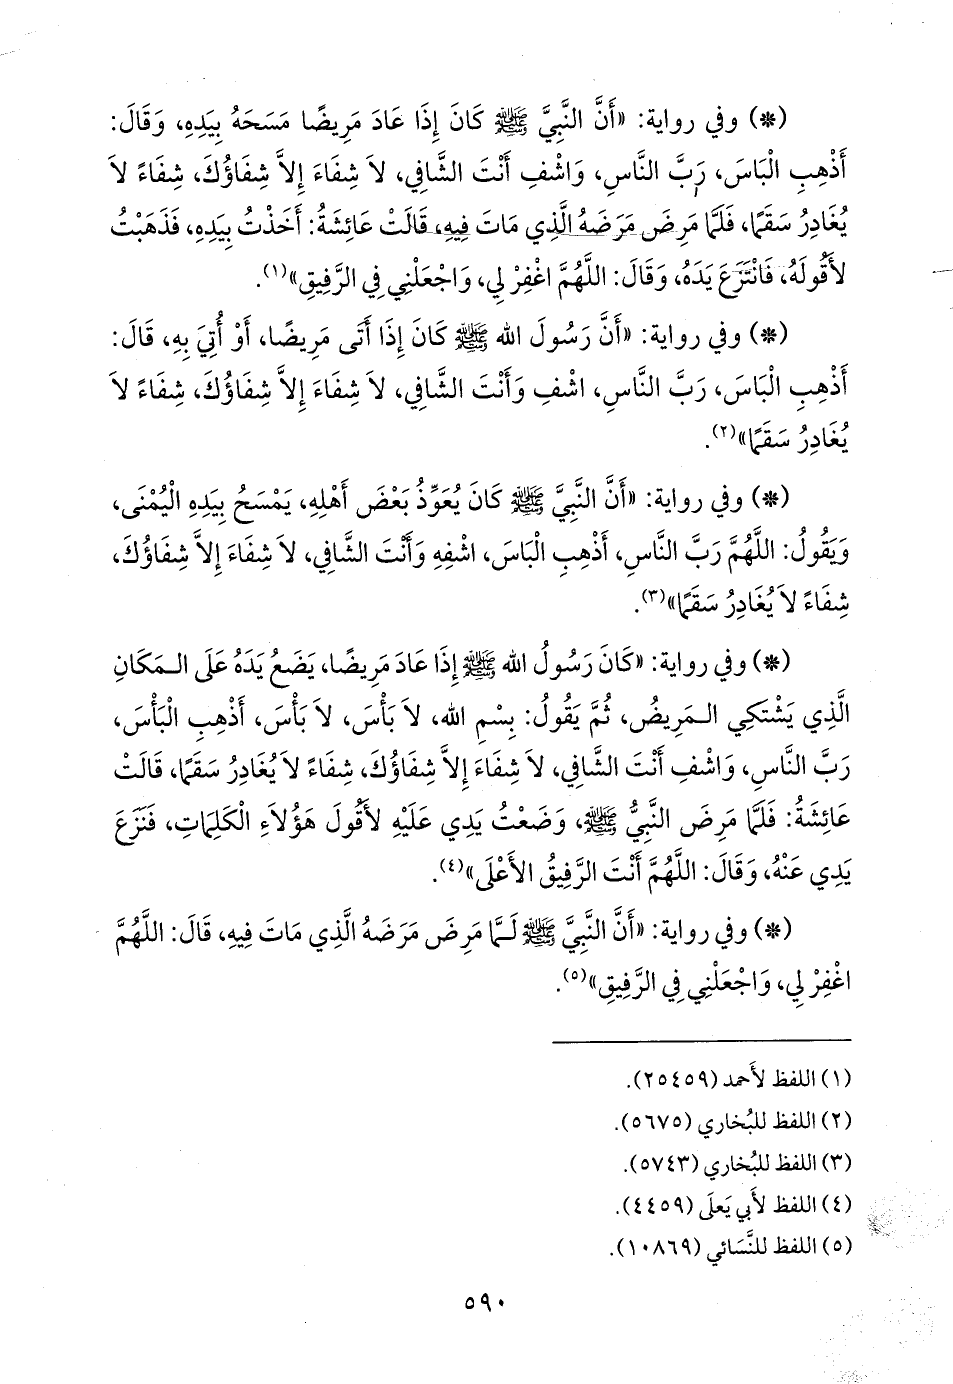 (*) وفي رواية: «أَنَّ النَّبِيَّ ﷺ كَانَ إِذَا عَادَ مَرِيضًا مَسَحَهُ بِيَدِهِ، وَقَالَ:
أَذْهِبِ الْبَاسَ، رَبَّ النَّاسِ، وَاشْفِ أَنْتَ الشَّافِي، لاَ شِفَاءَ إِلاَّ شِفَاؤُكَ، شِفَاءً لاَ
يُغَادِرُ سَقَمًا، فَلَمَّا مَرِضَ مَرَضَهُ الَّذِي مَاتَ فِيهِ، قَالَتْ عَائِشَةُ: أَخَذْتُ بِيَدِهِ، فَذَهَبْتُ
لأَقُولَهُ، فَانْتَزَعَ يَدَهُ، وَقَالَ: اللَّهُمَّ اغْفِرْ لِي، وَاجْعَلْنِي فِي الرَّفِيقِ»(١).
(*) وفي رواية: «أَنَّ رَسُولَ الله ﷺ كَانَ إِذَا أَتَى مَرِيضًا، أَوْ أُتِيَ بِهِ، قَالَ:
أَذْهِبِ الْبَاسَ، رَبَّ النَّاسِ، اشْفِ وَأَنْتَ الشَّافِي، لاَ شِفَاءَ إِلاَّ شِفَاؤُكَ، شِفَاءً لاَ
يُغَادِرُ سَقَمًا»(٢).
(*) وفي رواية: «أَنَّ النَّبِيَّ ﷺ كَانَ يُعَوِّذُ بَعْضَ أَهْلِهِ، يَمْسَحُ بِيَدِهِ الْيُمْنَى،
وَيَقُولُ: اللَّهُمَّ رَبَّ النَّاسِ، أَذْهِبِ الْبَاسَ، اشْفِهِ وَأَنْتَ الشَّافِي، لاَ شِفَاءَ إِلاَّ شِفَاؤُكَ،
شِفَاءً لاَ يُغَادِرُ سَقَمًا»(٣).
(*) وفي رواية: «كَانَ رَسُولُ الله ﷺ إِذَا عَادَ مَرِيضًا، يَضَعُ يَدَهُ عَلَى الـمَكَانِ
الَّذِي يَشْتَكِي الـمَرِيضُ، ثُمَّ يَقُولُ: بِسْمِ الله، لاَ بَأْسَ، لاَ بَأْسَ، أَذْهِبِ الْبَأْسَ،
رَبَّ النَّاسِ، وَاشْفِ أَنْتَ الشَّافِي، لاَ شِفَاءَ إِلاَّ شِفَاؤُكَ، شِفَاءً لاَ يُغَادِرُ سَقَمًا، قَالَتْ
عَائِشَةُ: فَلَمَّا مَرِضَ النَّبِيُّ ﷺ، وَضَعْتُ يَدِي عَلَيْهِ لأَقُولَ هَؤُلاَءِ الْكَلِمَاتِ، فَنَزَعَ
يَدِي عَنْهُ، وَقَالَ: اللَّهُمَّ أَنْتَ الرَّفِيقُ الأَعْلَى»(٤).
(*) وفي رواية: «أَنَّ النَّبِيَّ ﷺ لَـمَّا مَرِضَ مَرَضَهُ الَّذِي مَاتَ فِيهِ، قَالَ: اللَّهُمَّ
اغْفِرْ لِي، وَاجْعَلْنِي فِي الرَّفِيقِ»(٥).
(١) اللفظ لأَحمد (٢٥٤٥٩).
(٢) اللفظ للبُخاري (٥٦٧٥).
(٣) اللفظ للبُخاري (٥٧٤٣).
(٤) اللفظ لأَبي يَعلَى (٤٤٥٩).
(٥) اللفظ للنَّسَائي (١٠٨٦٩).
٥٩٠